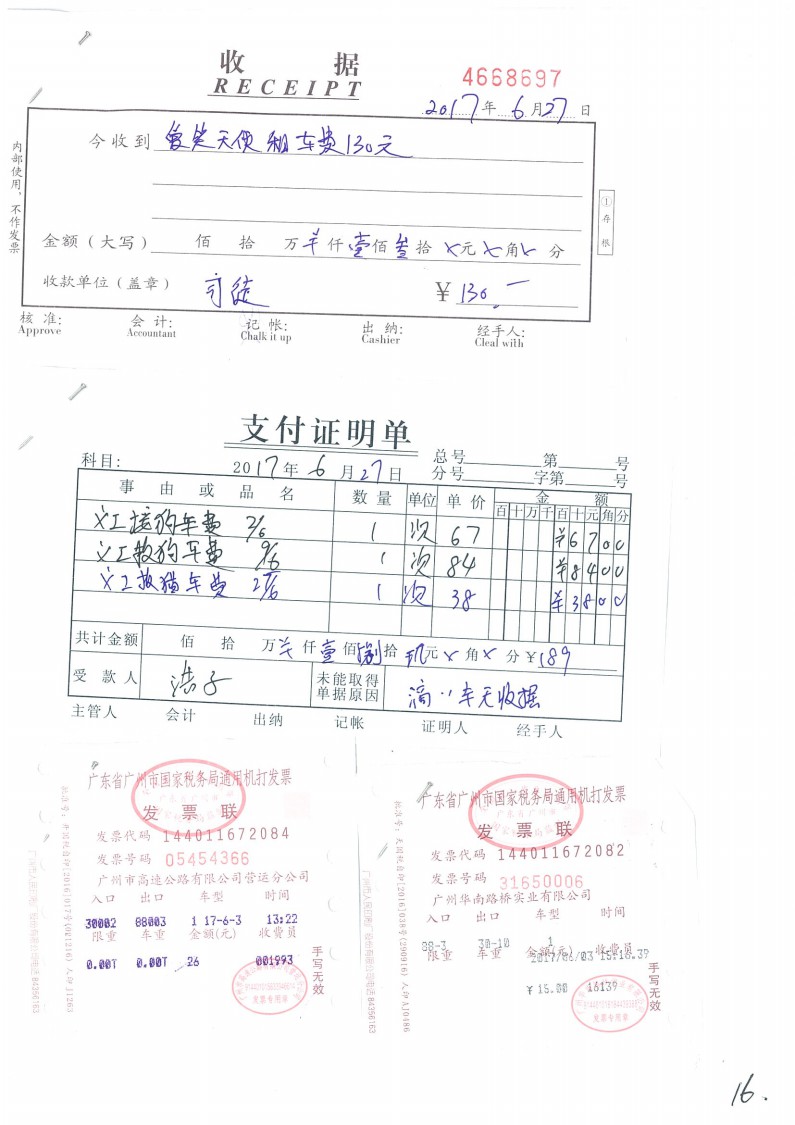 收 据
RECEIPT
4668697
2017年 6月27日
今收到 天使租车费130元
金额（大写） 佰 拾 万 仟壹佰叁拾 元 角 分
收款单位（盖章） 司徒 ￥130.一
内部使用，不作发票
①存根
核 准: 会 计: 记 帐: 出 纳: 经手人:
Approve Accountant Chalk it up Cashier Cleal with
支付证明单
科目: 2017年 6月27日
总号 第 号
分号 字第 号
事 由 或 品 名 数 量 单位 单 价 金 额
百十万千百十元角分
义工接狗车费 2/6 1 次 67 ￥6700
义工救狗车费 9/6 1 次 84 ￥8400
义工救猫车费 1 次 38 ￥3800
共计金额 佰 拾 万 仟壹佰捌拾玖元 角 分￥189
受 款 人 浩子 未能取得单据原因 滴 车无收据
主管人 会计 出纳 记帐 证明人 经手人
广东省广州市国家税务局通用机打发票
发 票 联
发票代码 144011672084
发票号码 05454366
广州市高速公路有限公司营运分公司
入口 出口 车型 时间
30002 88003 1 17-6-3 13:22
限重 车重 金额(元) 收费员
0.00T 0.00T 26 001993
手写无效
发票专用章
广东省广州市国家税务局通用机打发票
发 票 联
发票代码 144011672082
发票号码 31650006
广州华南路桥实业有限公司
入口 出口 车型 时间
38-3 30-10 1
限重 车重 金额(元) 收费员
2017/06/03 15:16.39
￥15.00 16139
手写无效
发票专用章
16.